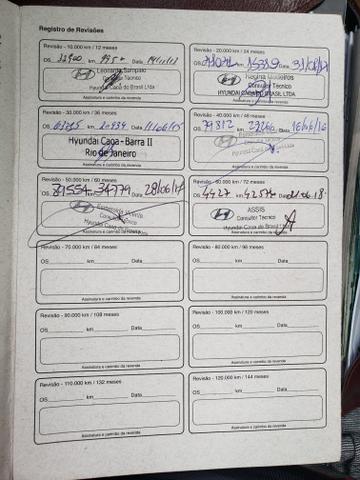 Registro de Revisões
Revisão - 10.000 km / 12 meses
OS km Data
Leonardo Sampaio
Consultor Técnico
Hyundai Caoa do Brasil Ltda
Assinatura e carimbo da revenda
Revisão - 20.000 km / 24 meses
OS km 15339 Data
Regina Medeiros
Consultor Técnico
HYUNDAI CAOA DO BRASIL LTDA
Assinatura e carimbo da revenda
Revisão - 30.000 km / 36 meses
OS km Data
Hyundai Caoa - Barra II
Rio de Janeiro
Assinatura e carimbo da revenda
Revisão - 40.000 km / 48 meses
OS 79812 km Data 16/06/16
Consultor Técnico
Hyundai Caoa do Brasil Ltda
Assinatura e carimbo da revenda
Revisão - 50.000 km / 60 meses
OS 91554 km 34779 Data 28/06/17
Consultor Técnico
Hyundai Caoa do Brasil Ltda
Assinatura e carimbo da revenda
Revisão - 60.000 km / 72 meses
OS 4427 km Data
ASSIS
Consultor Técnico
Hyundai Caoa do Brasil Ltda
Assinatura e carimbo da revenda
Revisão - 70.000 km / 84 meses
OS km Data
Assinatura e carimbo da revenda
Revisão - 80.000 km / 96 meses
OS km Data
Assinatura e carimbo da revenda
Revisão - 90.000 km / 108 meses
OS km Data
Assinatura e carimbo da revenda
Revisão - 100.000 km / 120 meses
OS km Data
Assinatura e carimbo da revenda
Revisão - 110.000 km / 132 meses
OS km Data
Assinatura e carimbo da revenda
Revisão - 120.000 km / 144 meses
OS km Data
Assinatura e carimbo da revenda